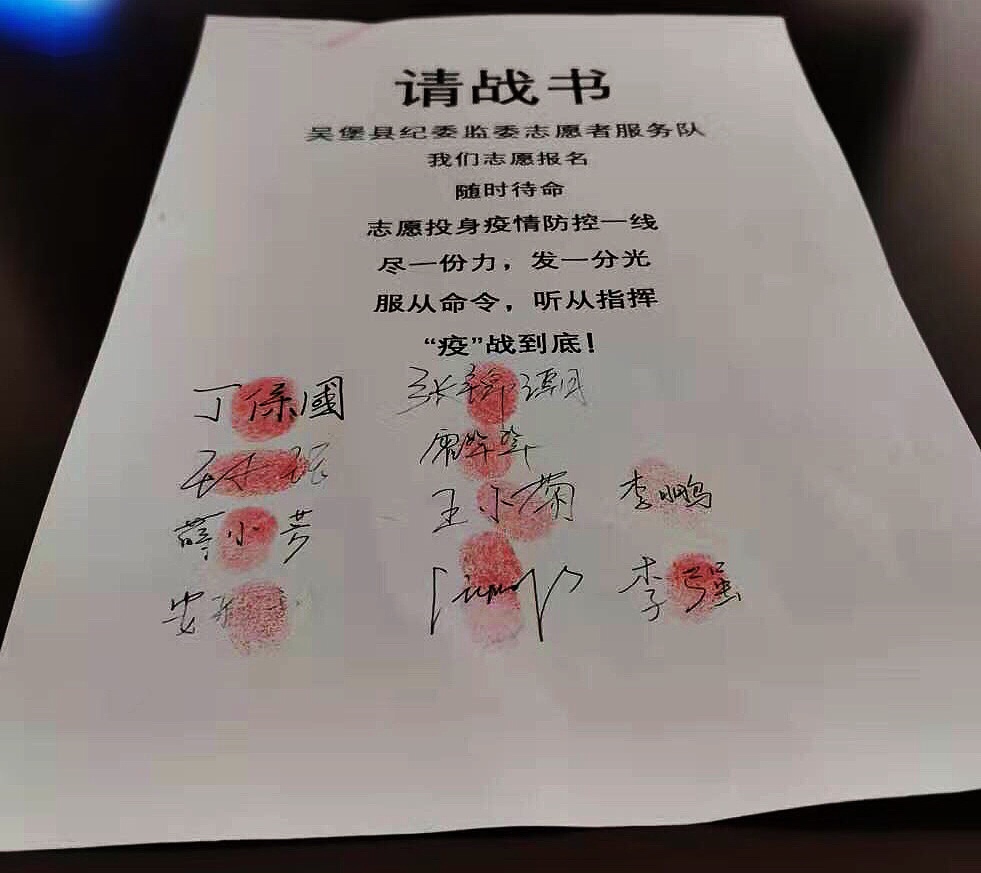 请战书
吴堡县纪委监委志愿者服务队
我们志愿报名
随时待命
志愿投身疫情防控一线
尽一份力，发一分光
服从命令，听从指挥
“疫”战到底！
丁保國 张
王 菊 李鹏
薛小芳
安 李强